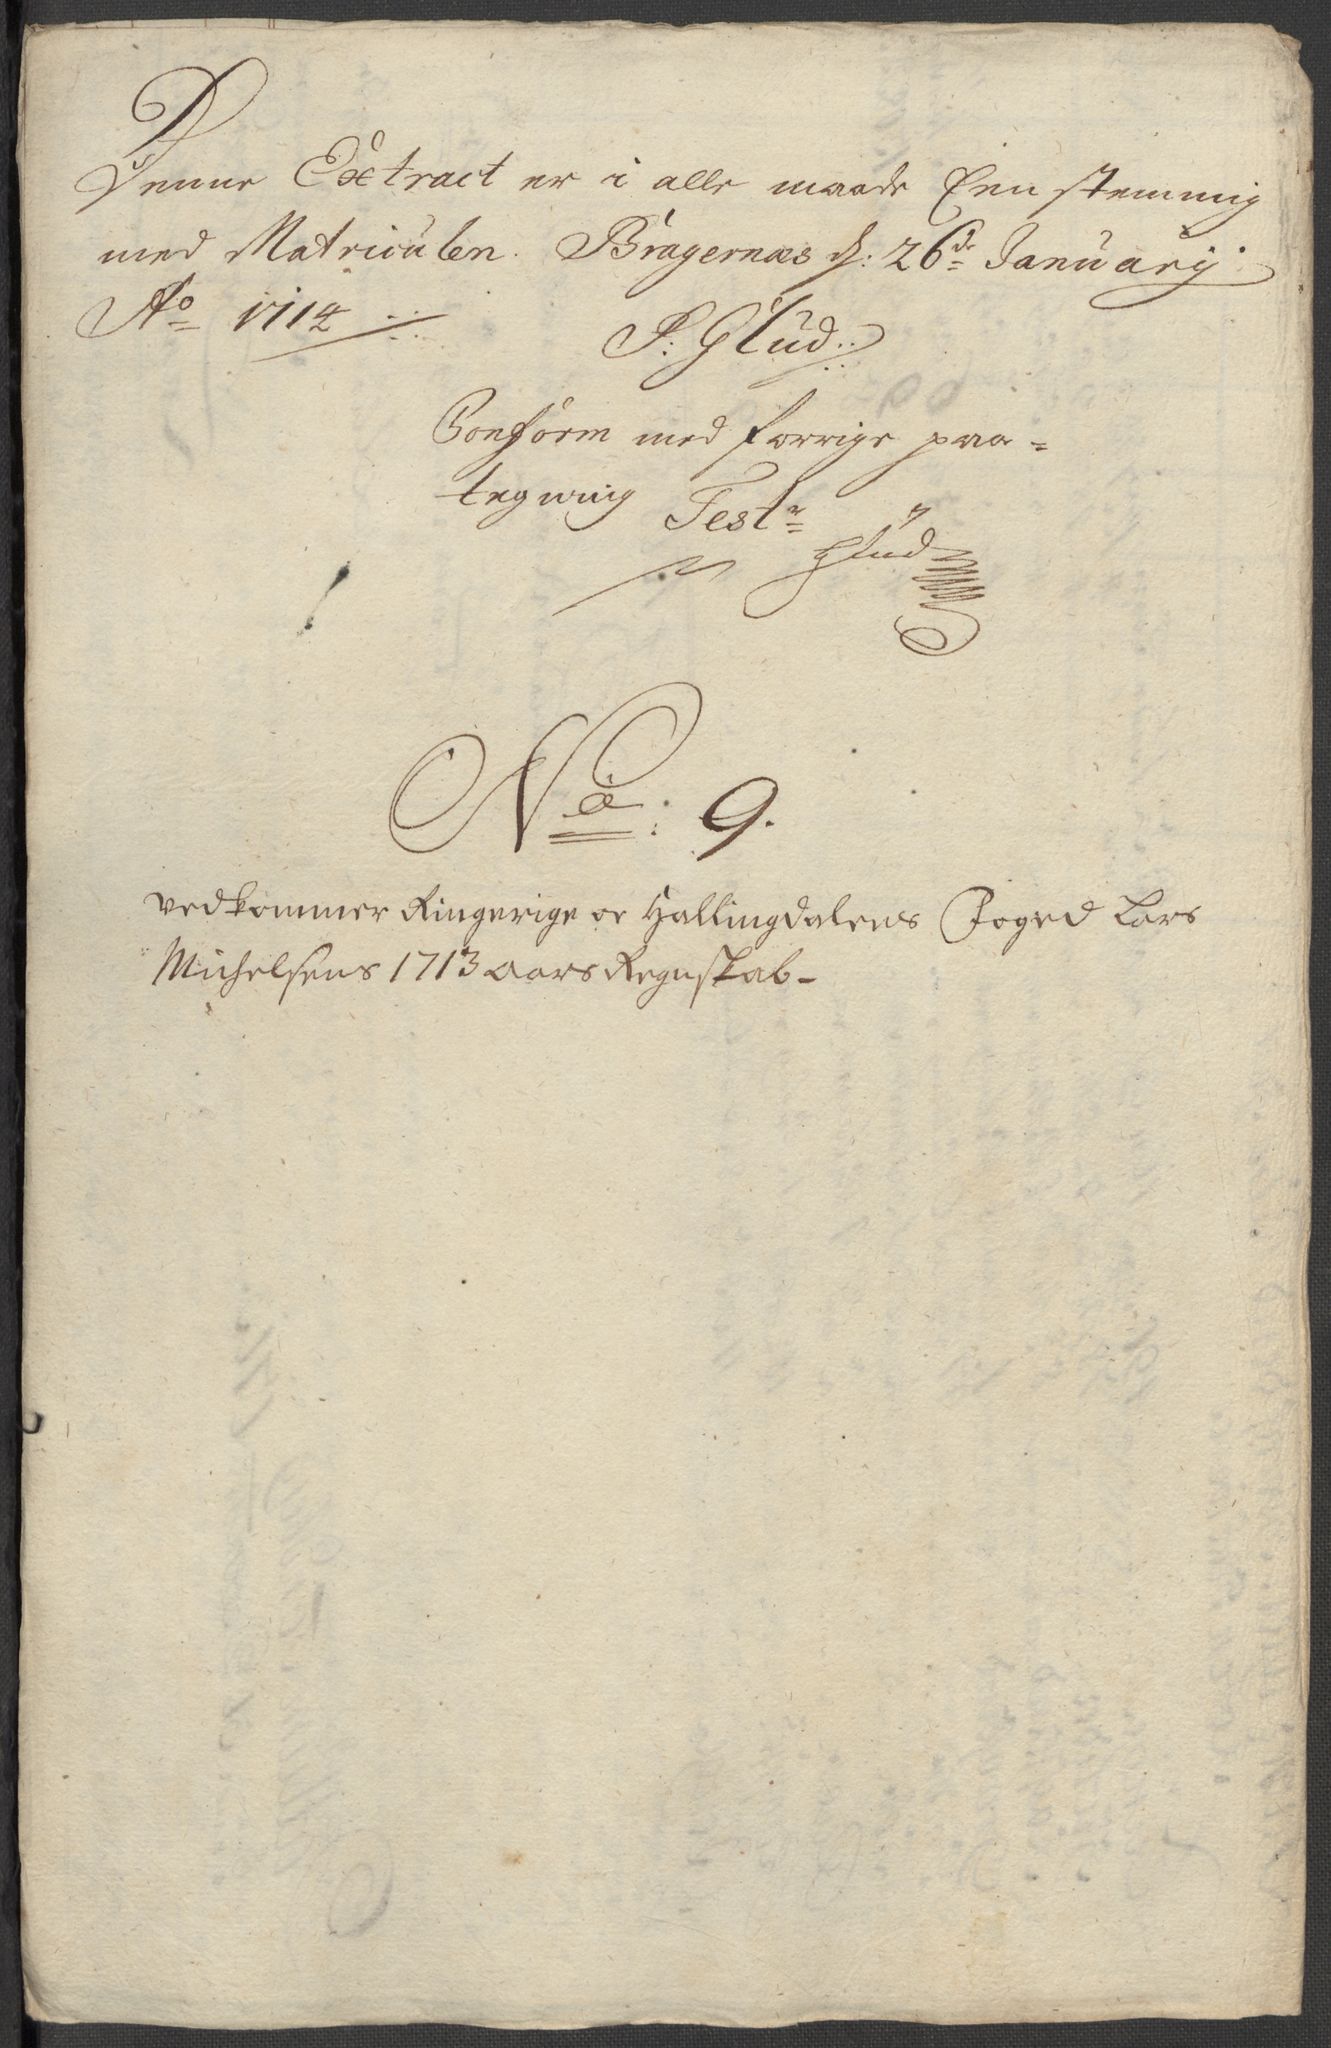 Denne Extract er i alle maade Een stemmig
med Matriculen. Bragernæs d: 26de January
Ao 1714
P: Glud
Conform med forrige paa-
tegning Test
Glud
No: 9.
vedkommer Ringerige oc Hallingdalens Foged Lars
Michelsens 1713 aars Regnskab-